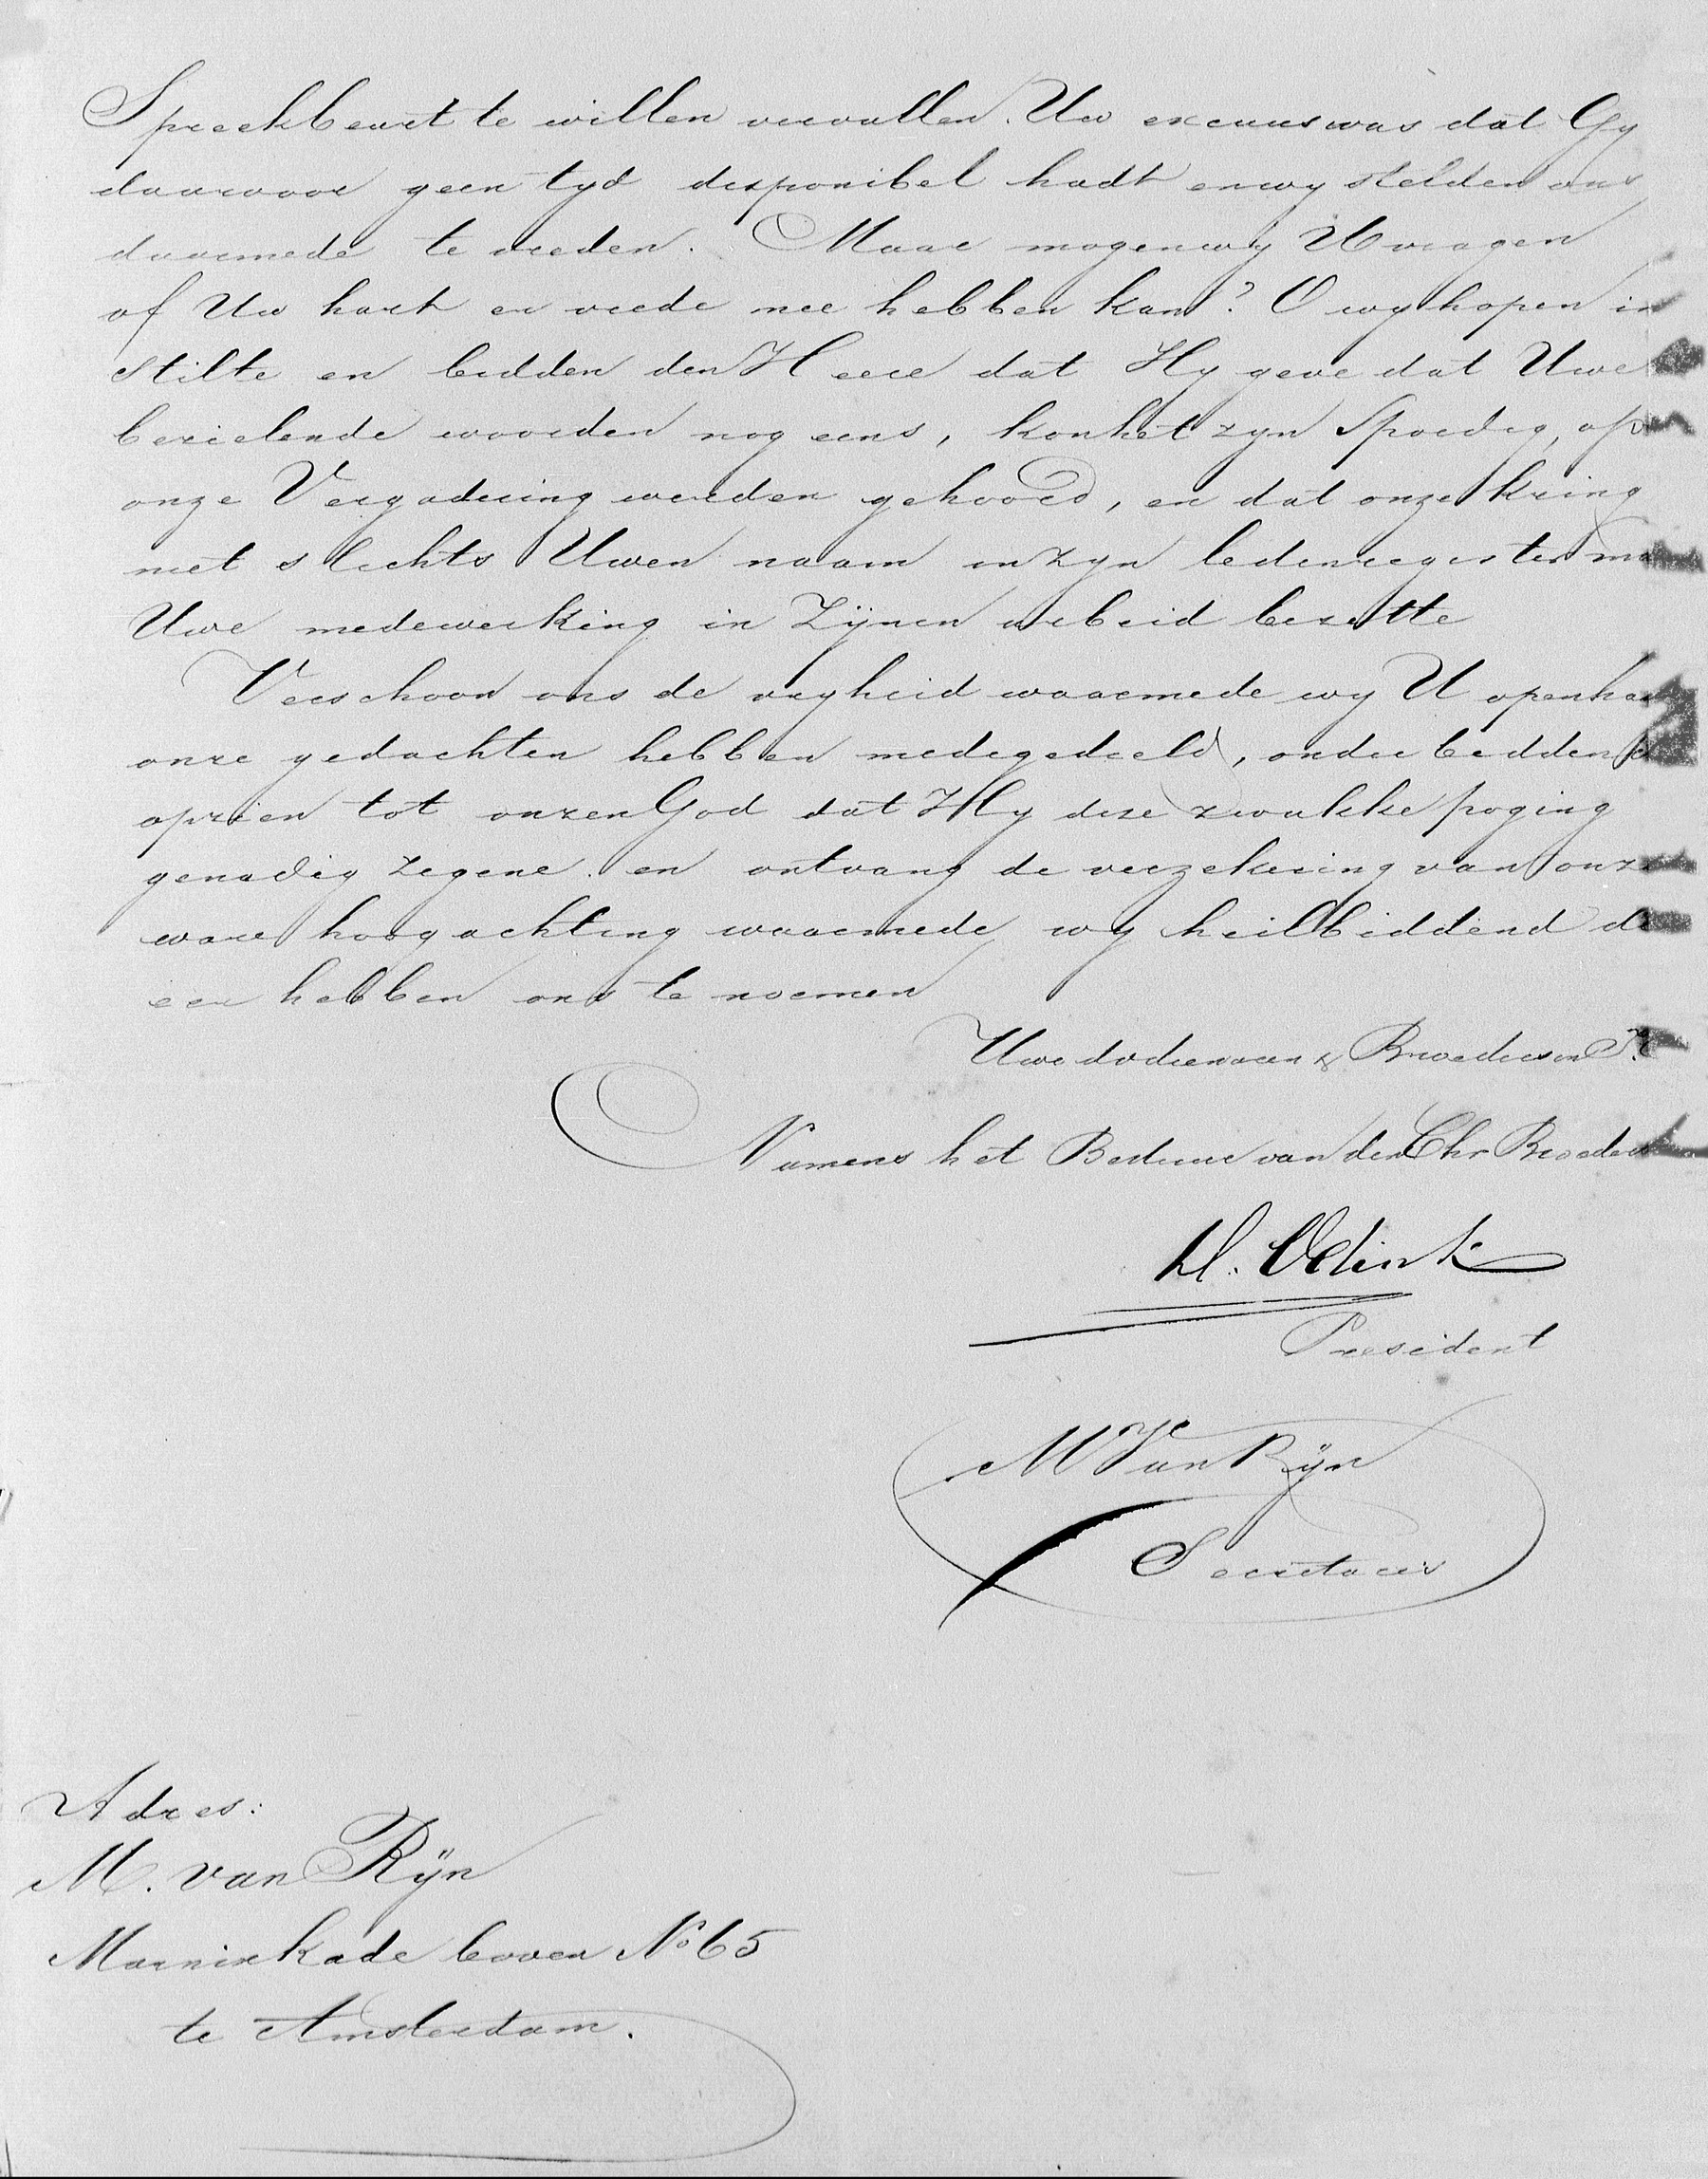 Spreekbeurt te willen vervullen. Uw excuus was dat Gy
daarvoor geen tyd disponibel hadt en wy stelden ons
daarmede te vreden. Maar mogen wy U vragen
of Uw hart er vrede mee hebben kan? O wy hopen in
stilte en bidden den Heere dat Hy geve dat Uwe
bezielende woorden nog eens, kon het zyn Spoedig, op
onze Vergadering werden gehoord, en dat onze Kring
niet slechts Uwen naam in zyn ledenregister ma
Uwe medewerking in Zijnen arbeid bezitte
Verschoon ons de vryheid waarmede wy U openha
onze gedachten hebben medegedeeld, onder biddend
opzien tot onzen God dat Hy deze zwakke poging
genadig zegene. en ontvang de verzekering van onze
ware hoogachting waarmede wy heilbiddend de
eer hebben ons te noemen
Uwe dv dienaren & Broeders in
Namens het Bestuur van den Chr Broeder
President
M Van Rijn
Secretaris
Adres:
M. van Rijn
Marnixkade boven No 65
te Amsterdam.